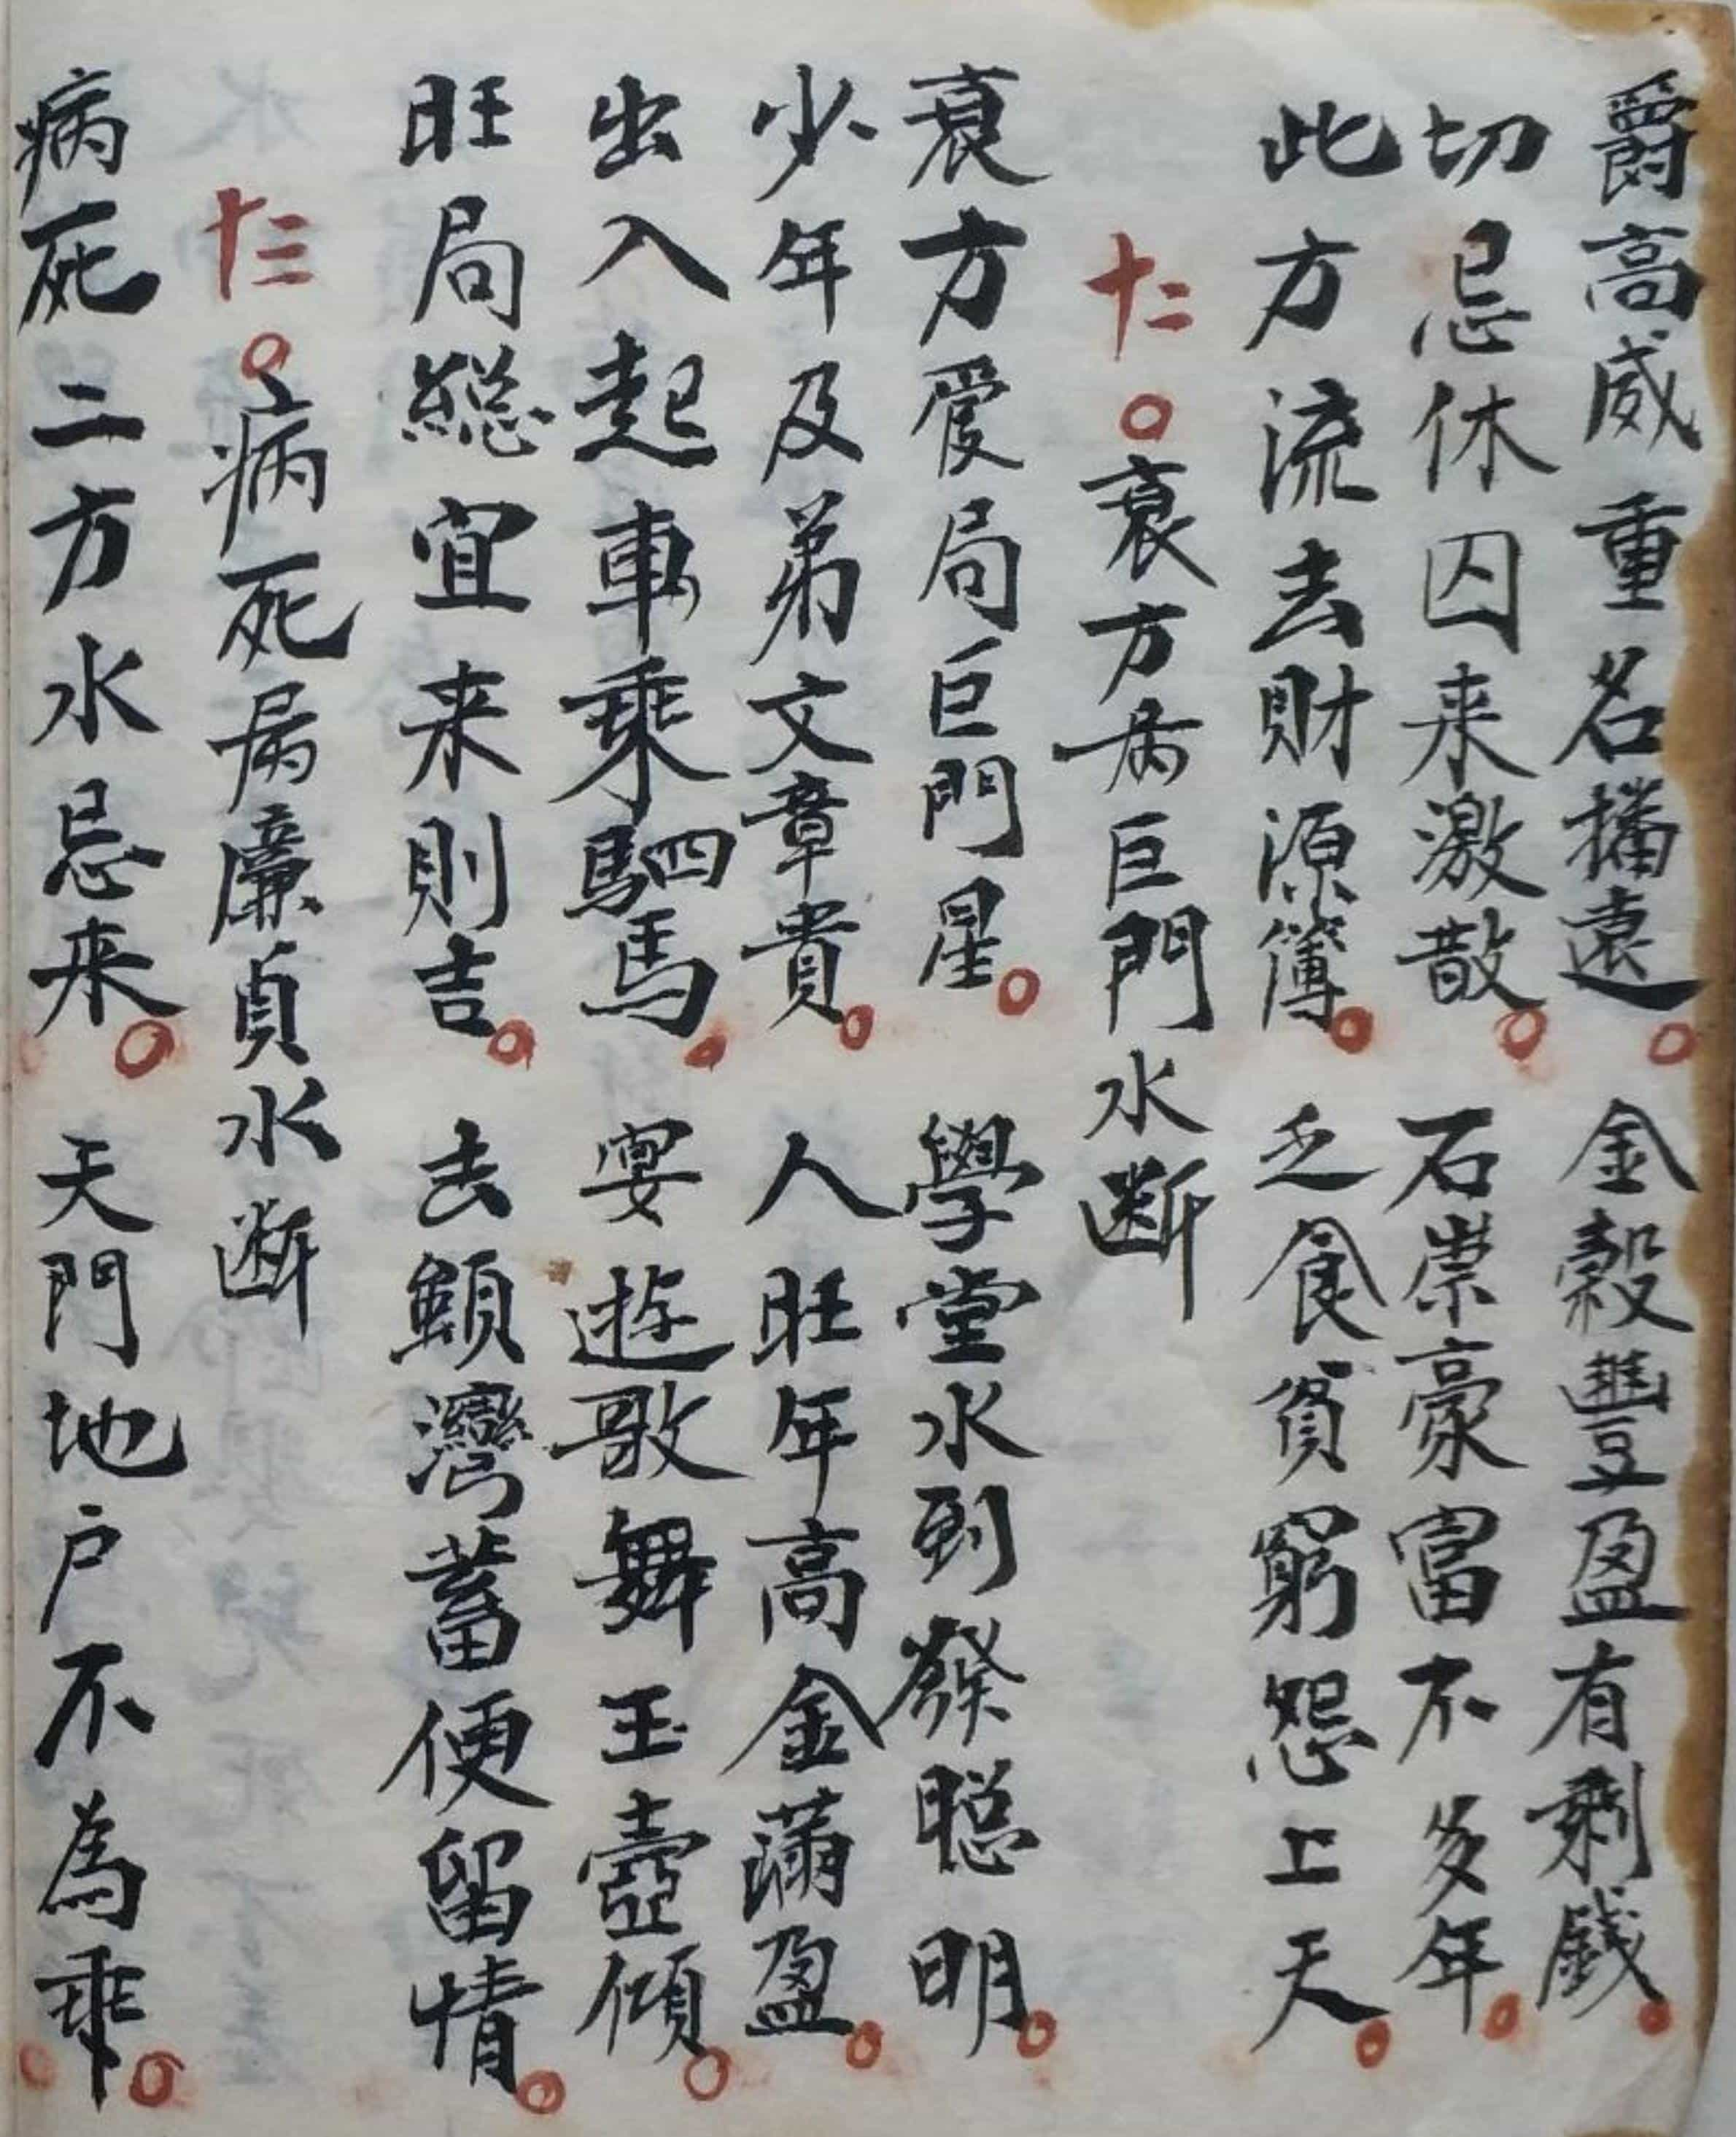 爵高威重名播遠。金穀豐盈有剩錢。
切忌休囚来激散。石崇豪富不多年。
此方流去財源簿。乏食貧窮怨上天。
十二〇衰方為巨門水断
衰方爱局巨門星。學堂水到發聪明。
少年及弟文章貴。人旺年高金滿盈。
出入起車乘駟馬。宴遊歌舞玉壺傾。
旺局総宜来則吉。去顧灣蓄便留情。
十三〇病死為廉貞水断
病死二方水忌来。天門地户不為乖。